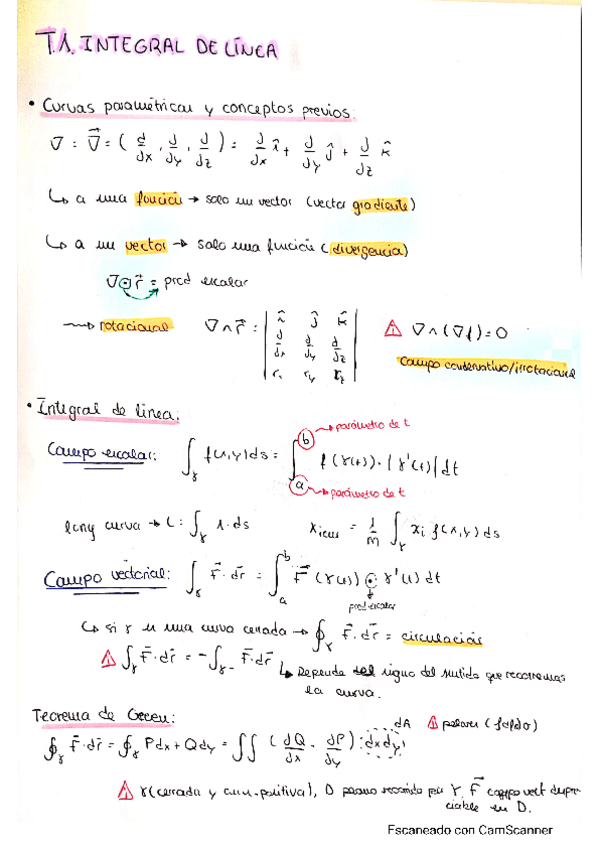 T.1. INTEGRAL DE LÍNEA
• Curvas paramétricas y conceptos previos:
∇ = ∇⃗ = ( d/dx , d/dy , d/dz ) = d/dx î + d/dy ĵ + d/dz k̂
↳ a una función → sale un vector (vector gradiente)
↳ a un vector → sale una función (divergencia)
∇⊙r⃗ = prod escalar
⟿ rotacional ∇∧r⃗ = | î ĵ k̂ | ⚠ ∇∧(∇f)=0
| d/dx d/dy d/dz |
| rx ry rz | Campo conservativo/irrotacional
• Integral de línea:
→ parámetro de t
Campo escalar: ∫γ f(x,y)ds = ∫_a^b f(γ(t))·|γ'(t)|dt
→ parámetro de t
long curva → L: ∫γ 1·ds = 1/m ∫γ xi f(x,y)ds
Campo vectorial: ∫γ F⃗·dr⃗ = ∫_a^b F⃗(γ(t)) ⊙ γ'(t)dt
prod escalar
↳ si γ es una curva cerrada → ∮γ F⃗·dr⃗ = circulación
⚠ ∫γ F⃗·dr⃗ = -∫γ- F⃗·dr⃗ ↳ Depende del signo del sentido que recorremos
la curva.
Teorema de Green: dA ⚠ (falda)
∮γ F⃗·dr⃗ = ∮γ Pdx + Qdy = ∬ ( dQ/dx - dP/dy ) · dxdy
⚠ γ(cerrada y curv. positiva), D plano recorrido por γ, F⃗ campo vect
en D.
Escaneado con CamScanner